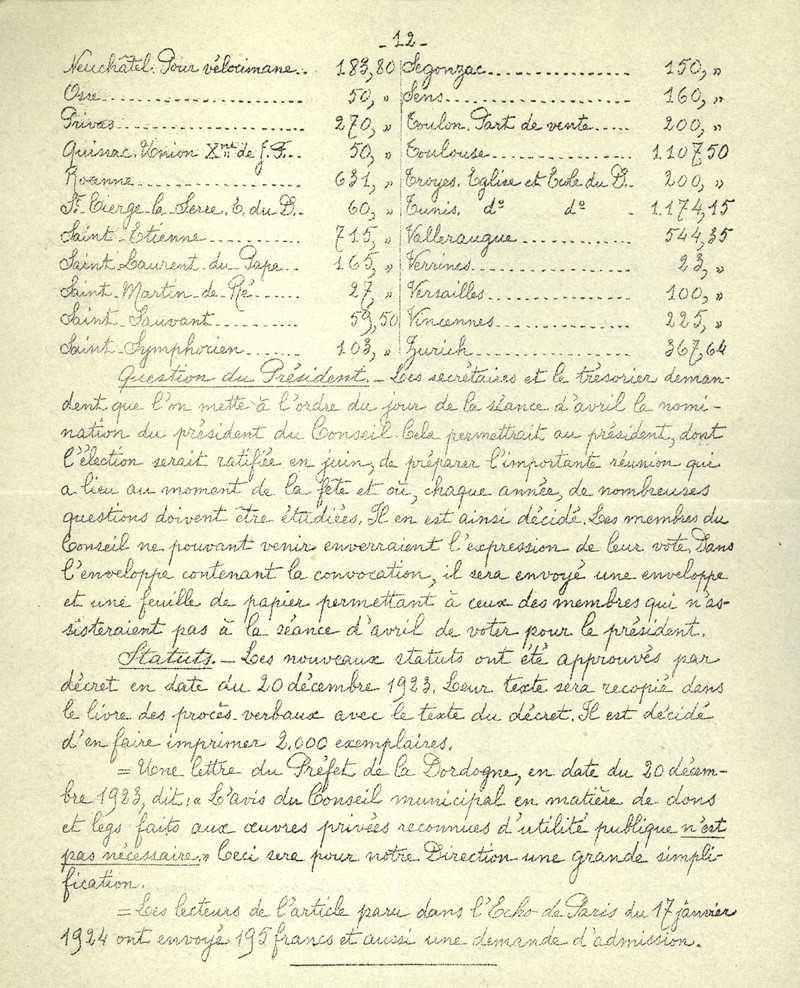 - 12 -
Neuchâtel. Pour vélocimane.. 183,80
Osse........................ 50, "
Privas...................... 270, "
Quissac. Union Xne de J. F... 50, "
Roanne...................... 631, "
St Cierge la Serre. É. du D.. 60, "
Saint-Etienne............ 715, "
Saint Laurent du Pape.... 165, "
Saint-Martin-de-Ré....... 27, "
Saint-Sauvant........... 59,50
Saint-Symphorien........ 103, "
Segonzac................. 150, "
Sens..................... 160, "
Toulon. Part de vente..... 200, "
Toulouse................. 1.107,50
Troyes. Eglise et Ecole du D.. 200, "
Tunis. do do . 1.174,15
Valleraugue............. 544,35
Verrines................ 23, "
Versailles.............. 100, "
Vincennes............... 225, "
Zurich.................. 367,64
Question du Président.- Les secrétaires et le trésorier deman-
dent que l'on mette à l'ordre du jour de la séance d'avril la nomi-
nation du président du Conseil. Cela permettrait au président, dont
l'élection serait ratifiée en juin, de préparer l'importante réunion qui
a lieu au moment de la fête et où, chaque année, de nombreuses
questions doivent être étudiées. Il en est ainsi décidé. Les membres du
Conseil ne pouvant venir enverraient l'expression de leur vote. Dans
l'enveloppe contenant la convocation, il sera envoyé une enveloppe
et une feuille de papier permettant à ceux des membres qui n'as-
sisteraient pas à la séance d'avril de voter pour le président.
Statuts.- Les nouveaux statuts ont été approuvés par
décret en date du 20 décembre 1923. Leur texte sera recopié dans
le livre des procès-verbaux avec le texte du décret. Il est décidé
d'en faire imprimer 2.000 exemplaires.
= Une lettre du Préfet de la Dordogne, en date du 20 décem-
bre 1923, dit: « L'avis du Conseil municipal en matière de dons
et legs faits aux œuvres privées reconnues d'utilité publique n'est
pas nécessaire.» Ceci sera pour notre Direction une grande simpli-
fication.
= Les lecteurs de l'article paru dans l'Echo de Paris du 17 janvier
1924 ont envoyé 195 francs et aussi une demande d'admission.